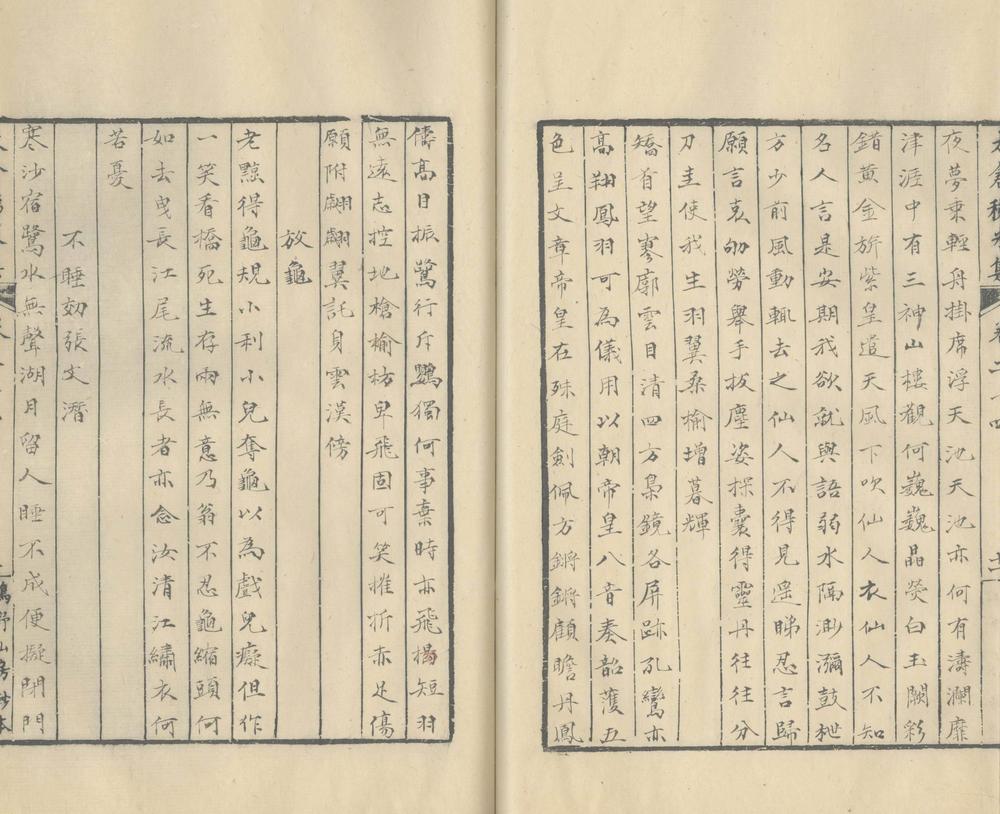 夜夢乗輕舟掛席浮天池天池亦何有濤瀾靡
津涯中有三神山樓觀何巍巍晶熒白玉闕彩
錯黄金旂紫皇遣天風下吹仙人衣仙人不知
名人言是安期我欲就與語弱水隔渺瀰鼓枻
方少前風動輒去之仙人不得見遥睇忍言歸
願言哀劬勞舉手拔塵姿探囊得靈丹往往分
刀圭使我生羽翼桑榆增暮輝
矯首望寥廓雲目清四方梟鏡各屏跡孔鸞亦
高翔鳳羽可為儀用以朝帝皇八音奏韶頀五
色呈文章帝皇在殊庭劍佩方鏘鏘顧瞻丹鳳
儔高目振鷺行斥鷃獨何事棄時亦飛揚短羽
無遠志控地槍榆枋卑飛固可笑摧折亦足傷
願附翩翩翼託身雲漢傍
放龜
老黥得龜規小利小兒奪龜以為戲兒癡但作
一笑看橋死生存兩無意乃翁不忍龜縮頭何
如去曳長江尾流水長者亦念汝清江繡衣何
若憂
不睡効張文潛
寒沙宿鷺水無聲湖月留人睡不成便擬閉門